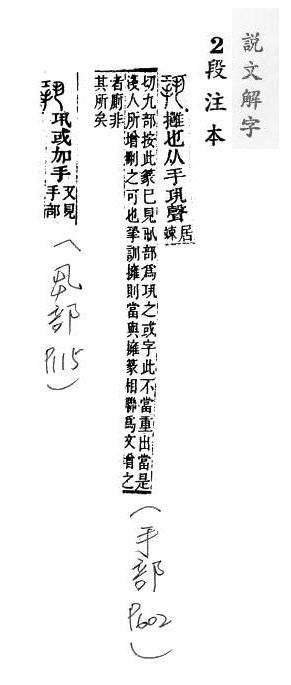 説文解字
2段注本
擁也从手巩聲
居
竦
切九部按此篆巳見丮部爲巩之或字此不當重出當是
淺人所增刪之可也訓擁則當與擁篆相聯爲文增之
者廁非
其所矣
(手部 P602)
巩或加手
又見
手部
(丮部 P115)